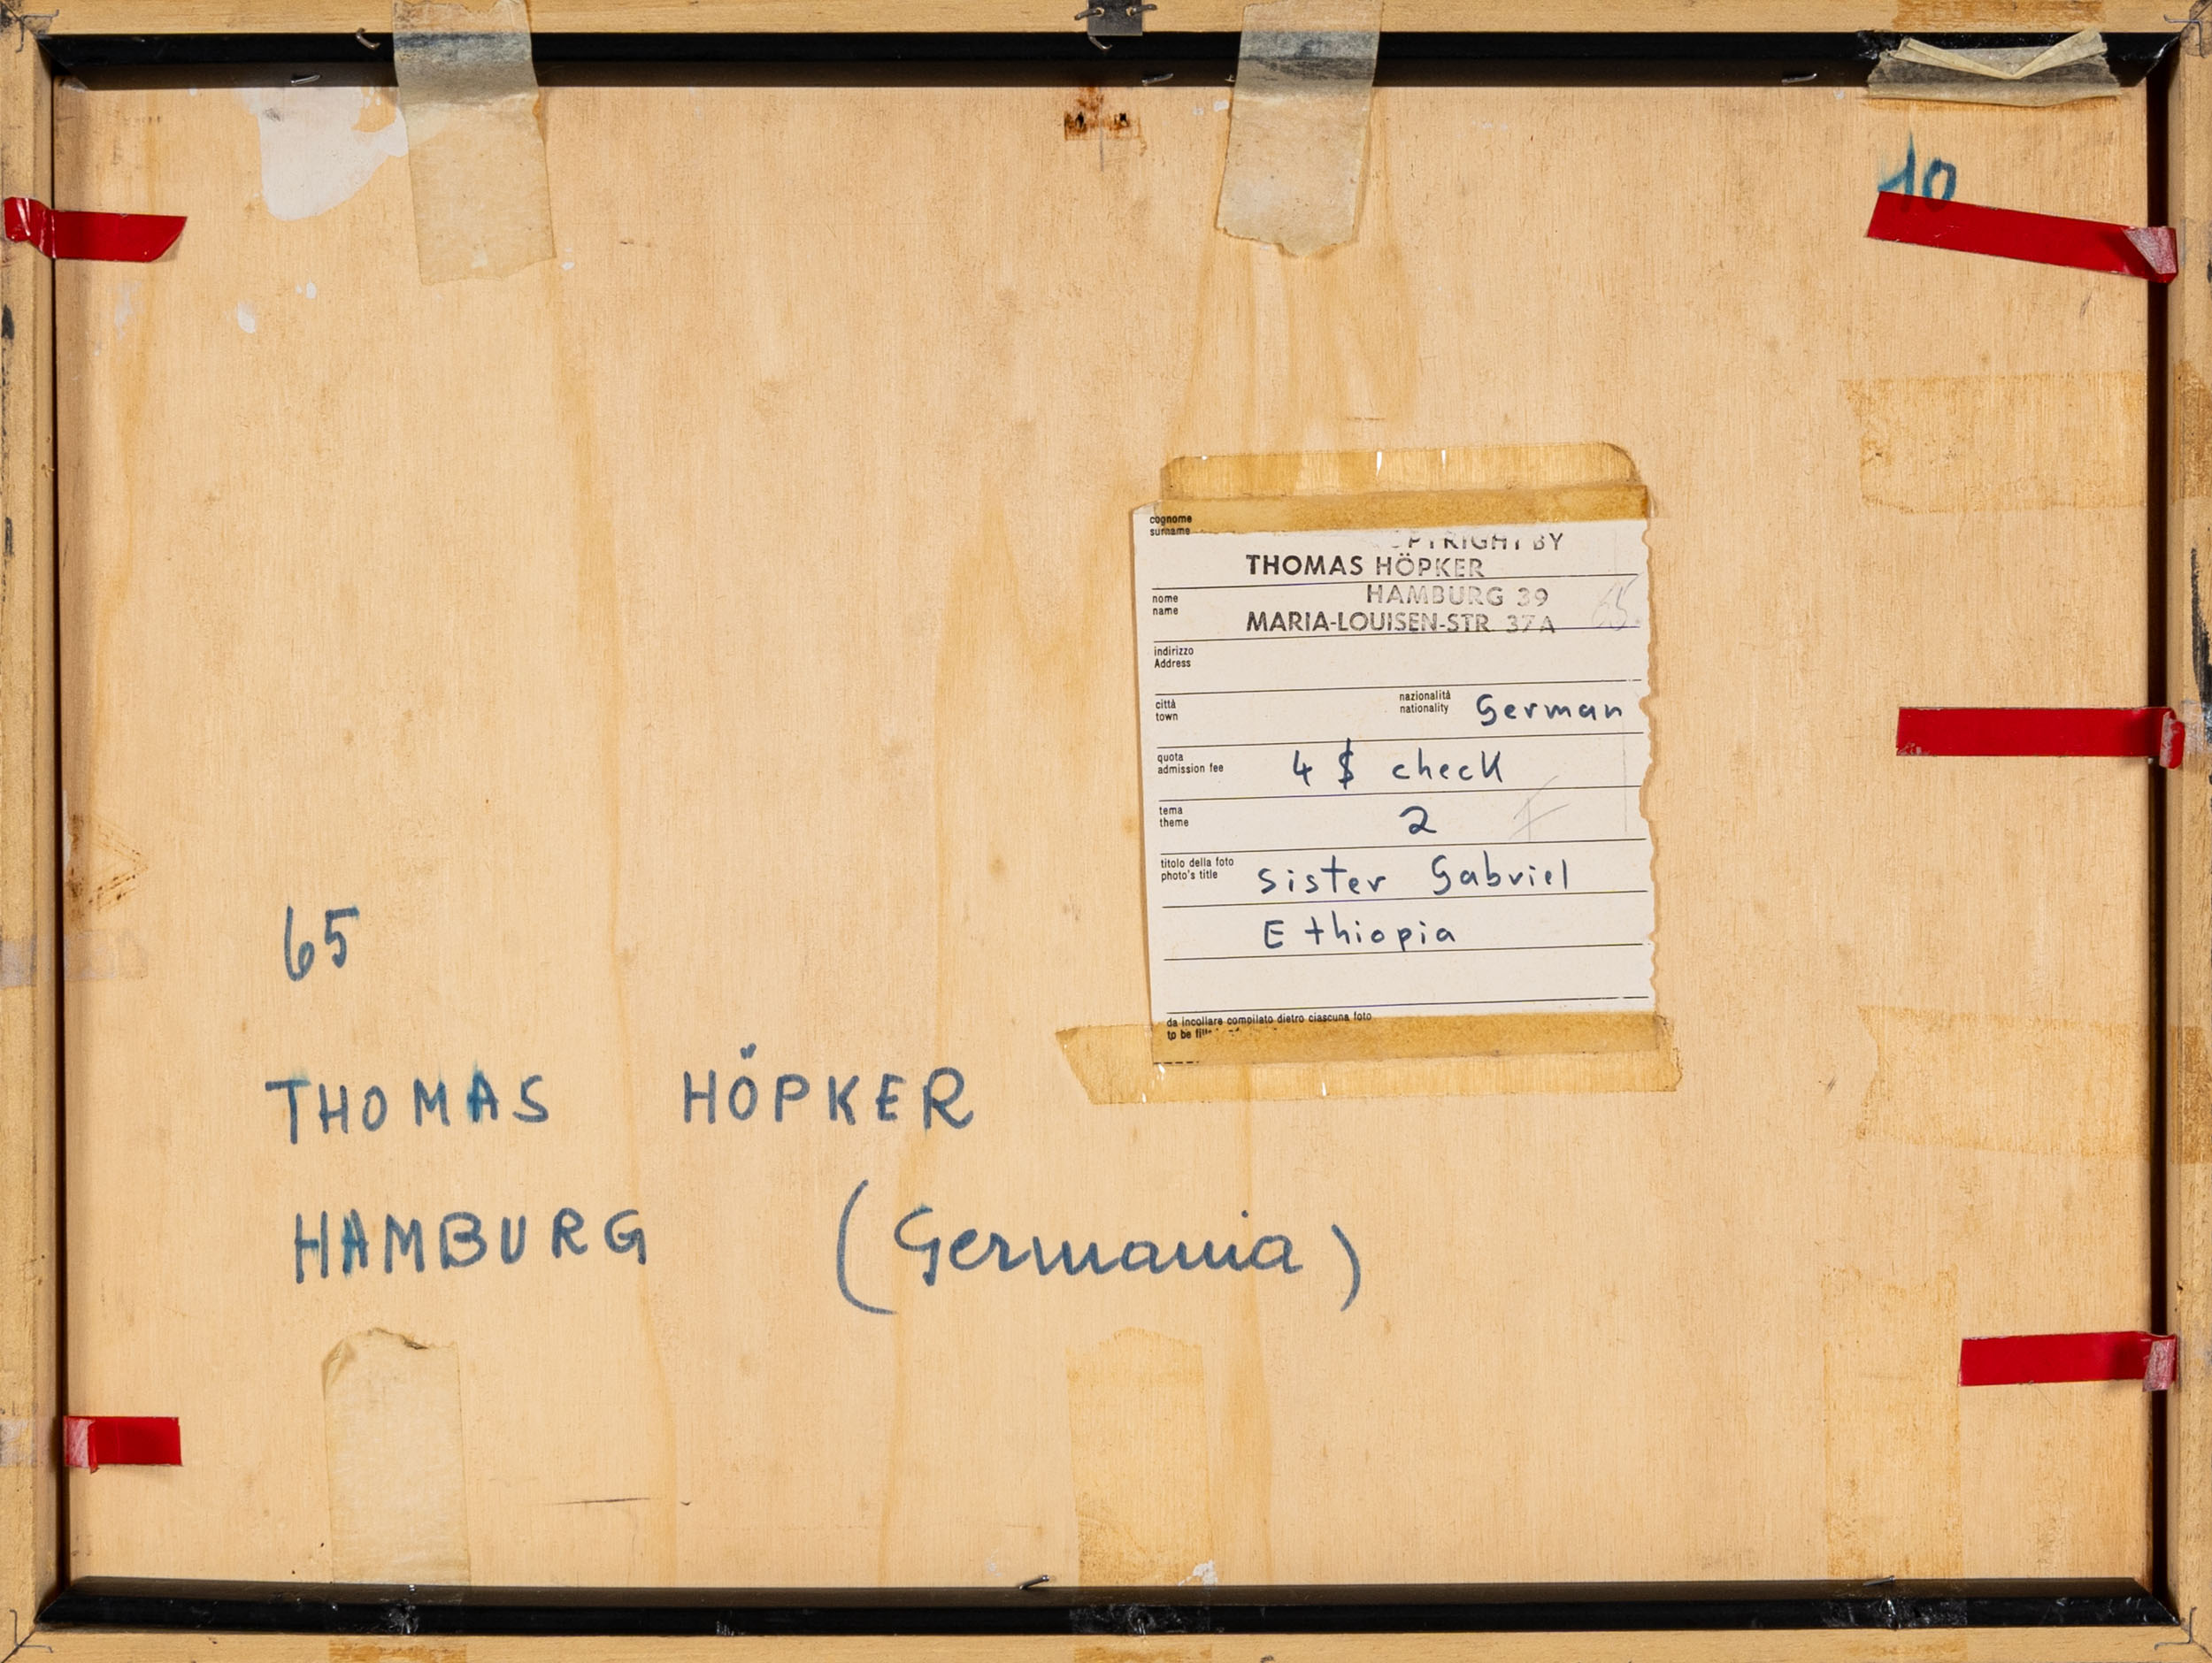 10
cognome
surname
PYRIGHT BY
THOMAS HÖPKER
nome
name
HAMBURG 39
65.
MARIA-LOUISEN-STR. 37A
indirizzo
Address
città
town
nazionalità
nationality
German
quota
admission fee
4 $ check
tema
theme
2
titolo della foto
photo's title
Sister Gabriel
Ethiopia
da incollare compilato dietro ciascuna foto
to be
65
THOMAS HÖPKER
HAMBURG (Germania)